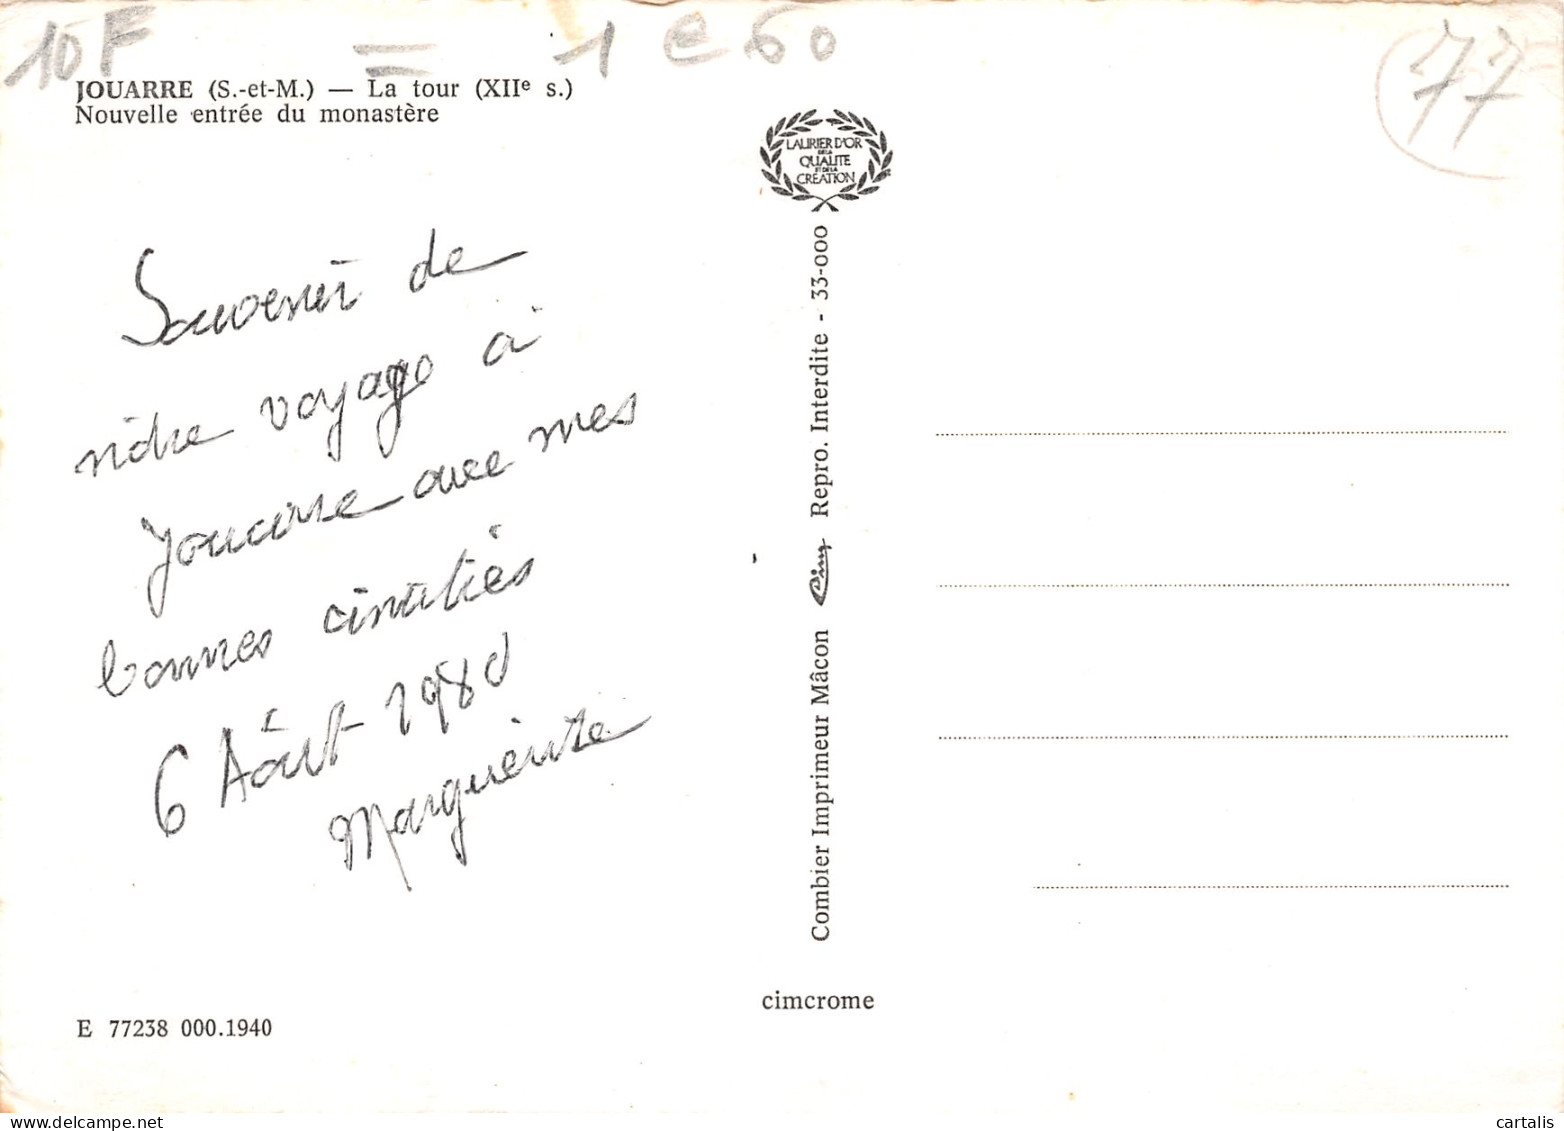 10F = 1 e 60
77
JOUARRE (S.-et-M.) — La tour (XIIe s.)
Nouvelle entrée du monastère
LAURIER D'OR
DE LA
QUALITE
ET DE LA
CREATION
Souvenir de
nôtre voyage à
Jouarre avec mes
bonnes amitiés
6 Août 1980
Marguerite
Combier Imprimeur Mâcon Cim Repro. Interdite - 33-000
cimcrome
E 77238 000.1940
delcampe.net
cartalis